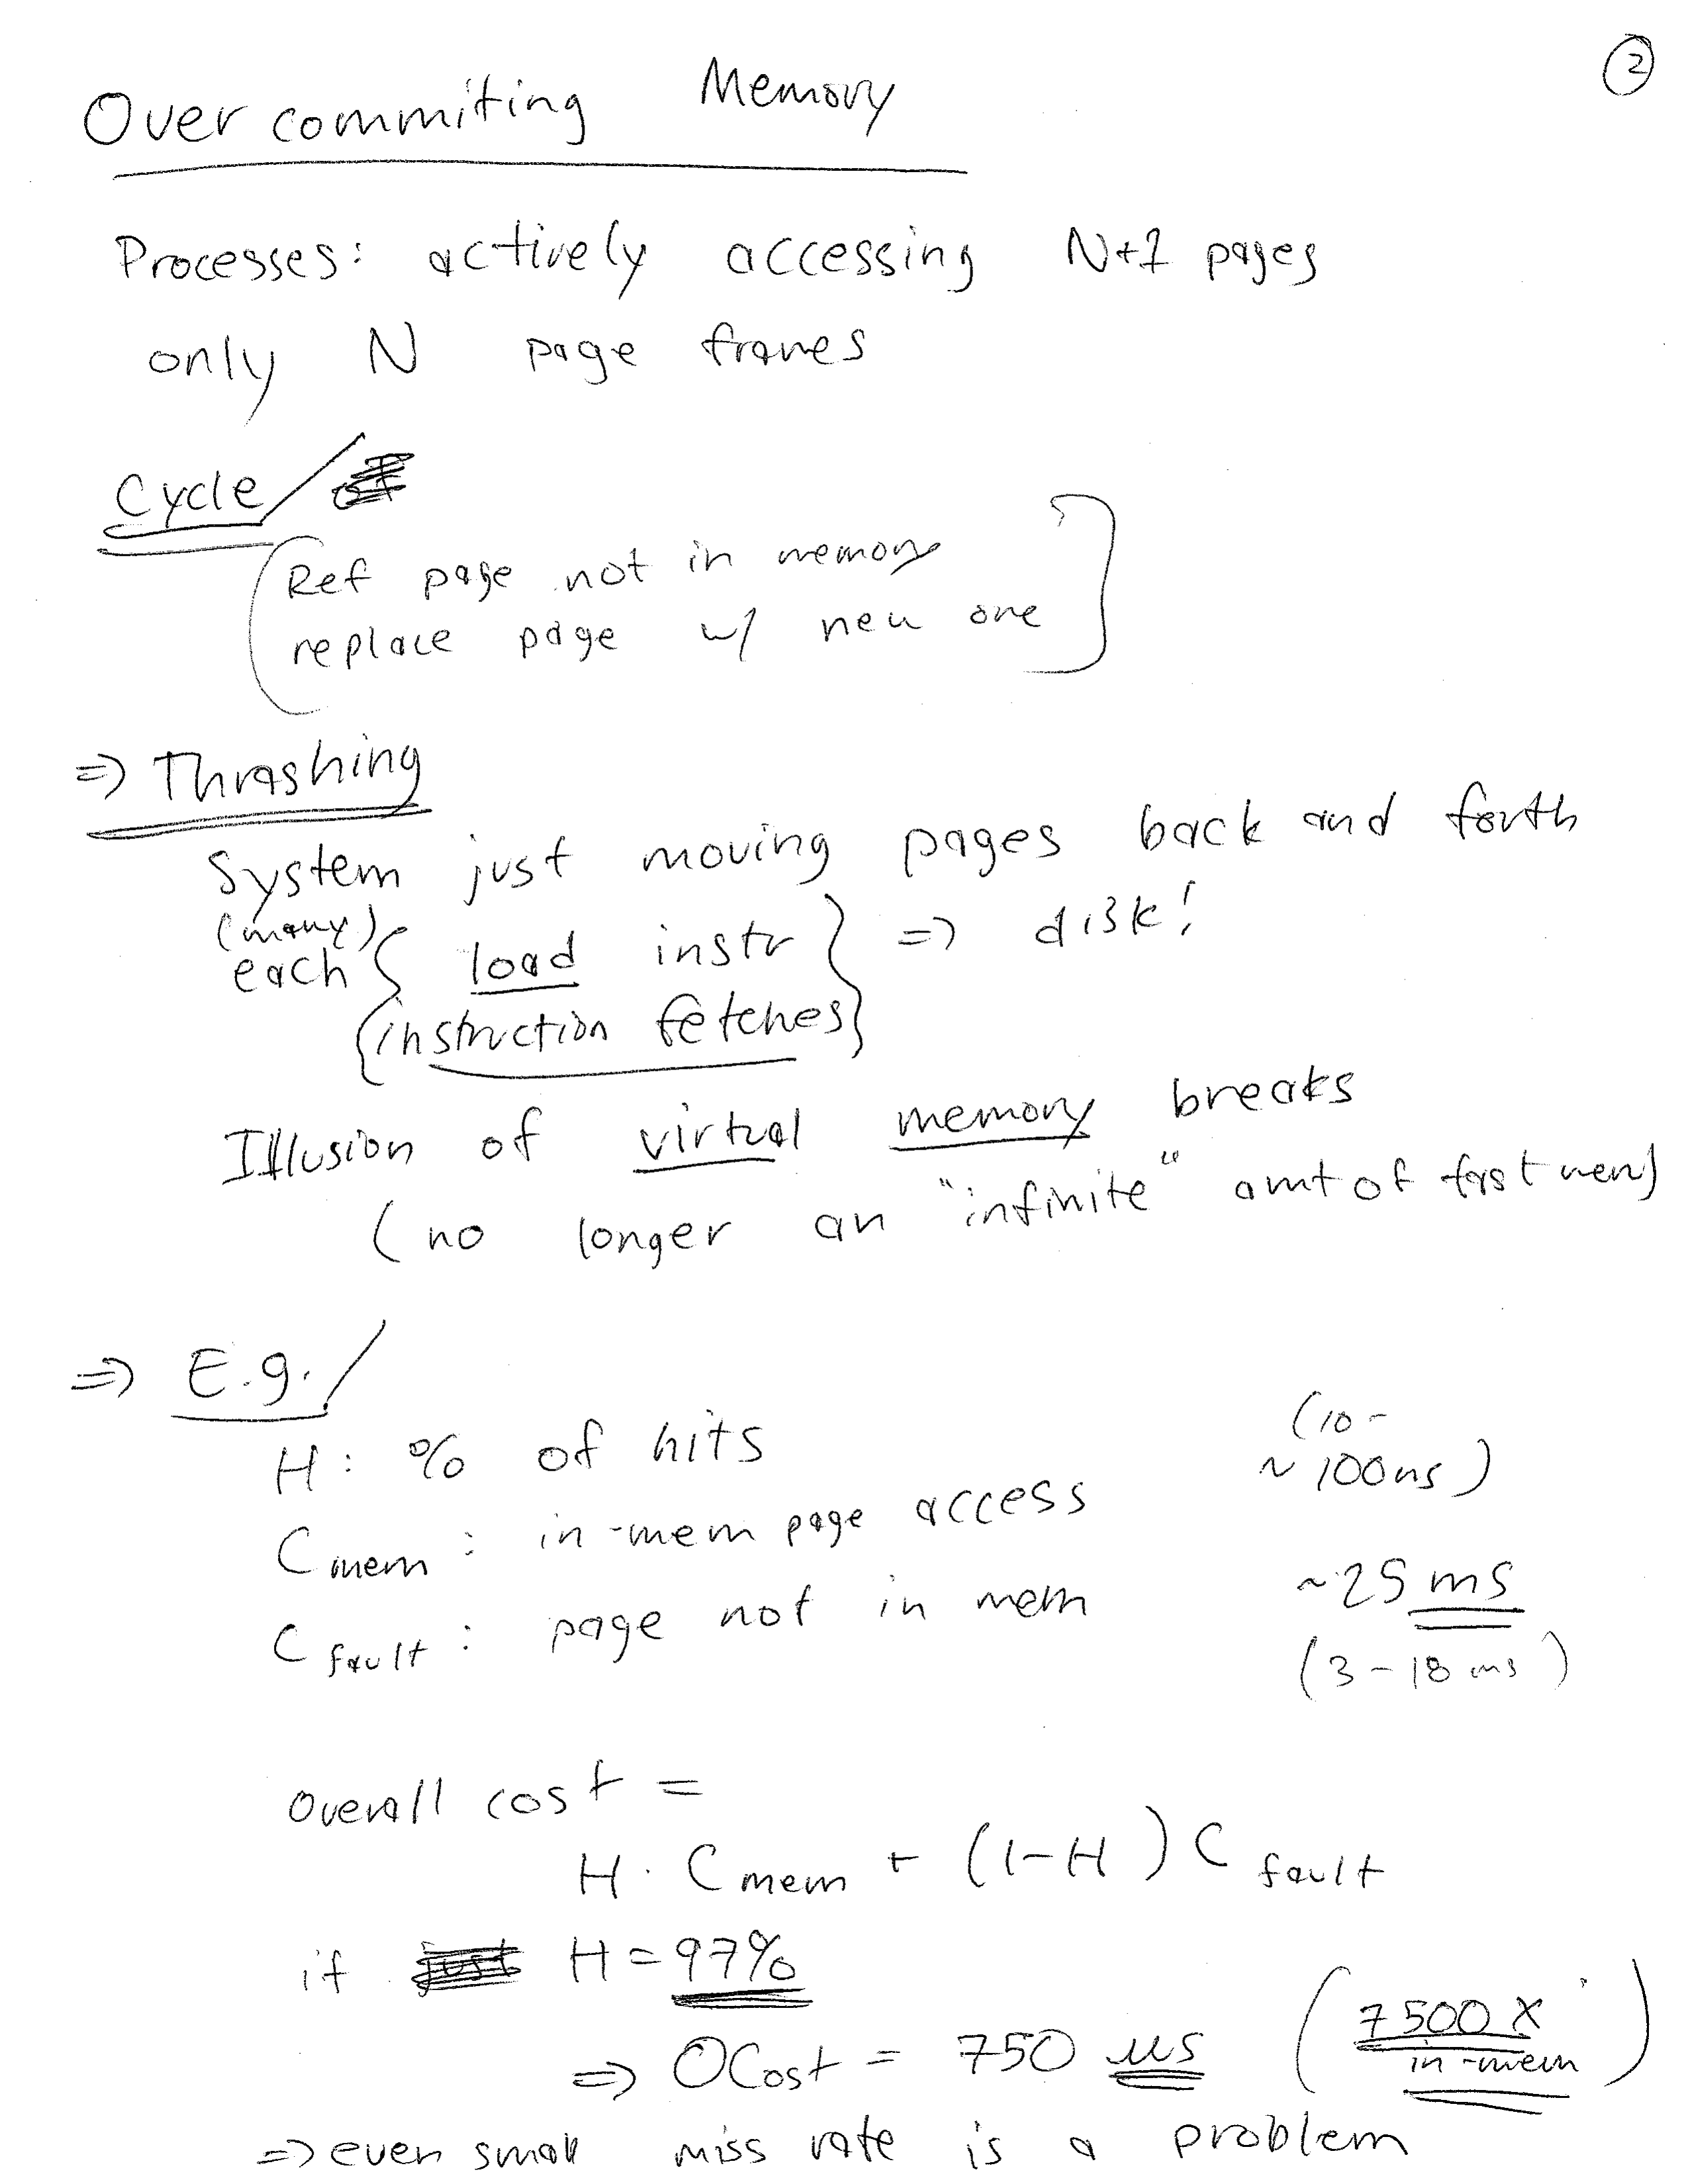 2
Over commiting Memory
Processes: actively accessing N+1 pages
only N page frames
Cycle/
Ref page not in memory
replace page w/ new one
=> Thrashing
System just moving pages back and forth
(many)
each { load instr } => disk!
{instruction fetches}
Illusion of virtual memory breaks
(no longer an "infinite" amt of fast mem)
=> E.g./
H: % of hits
(10-
~100ns)
Cmem: in-mem page access
Cfault: page not in mem
~25 ms
(3-18 ms)
Overall cost =
H · Cmem + (1-H) Cfault
if H = 97%
=> OCost = 750 µs (7500 X
in-mem)
=> even small miss rate is a problem